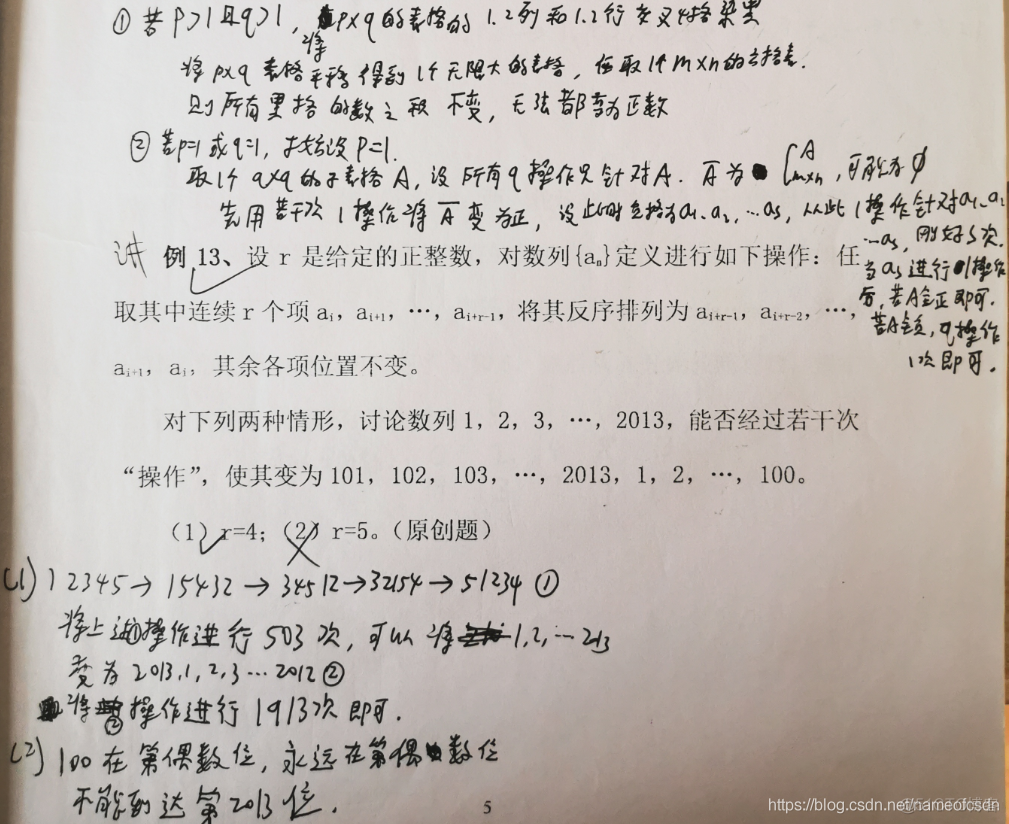 ① 若p>1且q>1, 将p×q的表格的1.2列和1.2行交叉4格染黑
将p×q表格平移得到1个无限大的表格, 任取1个m×n的方格表.
则所有黑格的数之积不变, 无法都变为正数
② 若p=1或q=1, 不妨设p=1.
取1个q×q的子表格A, 设所有q操作只针对A. Ā为 ∁ A m×n, 可能为∅
先用若干次1操作将Ā变为正, 设此时 为a₁、a₂, …as, 从此1操作针对a₁、a₂
…as, 刚好s次.
讲 例 13、设 r 是给定的正整数，对数列{aₙ}定义进行如下操作：任
当as进行 1操作
取其中连续 r 个项 aᵢ，aᵢ₊₁，…，aᵢ₊ᵣ₋₁，将其反序排列为 aᵢ₊ᵣ₋₁，aᵢ₊ᵣ₋₂，…，
后, 若A全正即可.
若A全负, q操作
aᵢ₊₁，aᵢ，其余各项位置不变。
1次即可.
对下列两种情形，讨论数列 1，2，3，…，2013，能否经过若干次
“操作”，使其变为 101，102，103，…，2013，1，2，…，100。
（1）r=4；（2）r=5。（原创题）
(1) 12345→15432→34512→32154→51234 ①
将上述①操作进行503次, 可以将1,2,…2013
变为2013,1,2,3…2012 ②
将②操作进行1913次即可.
(2) 100在第偶数位, 永远在第偶数位
不能到达第2013位.
5
https://blog.csdn.net/nameofcsdn